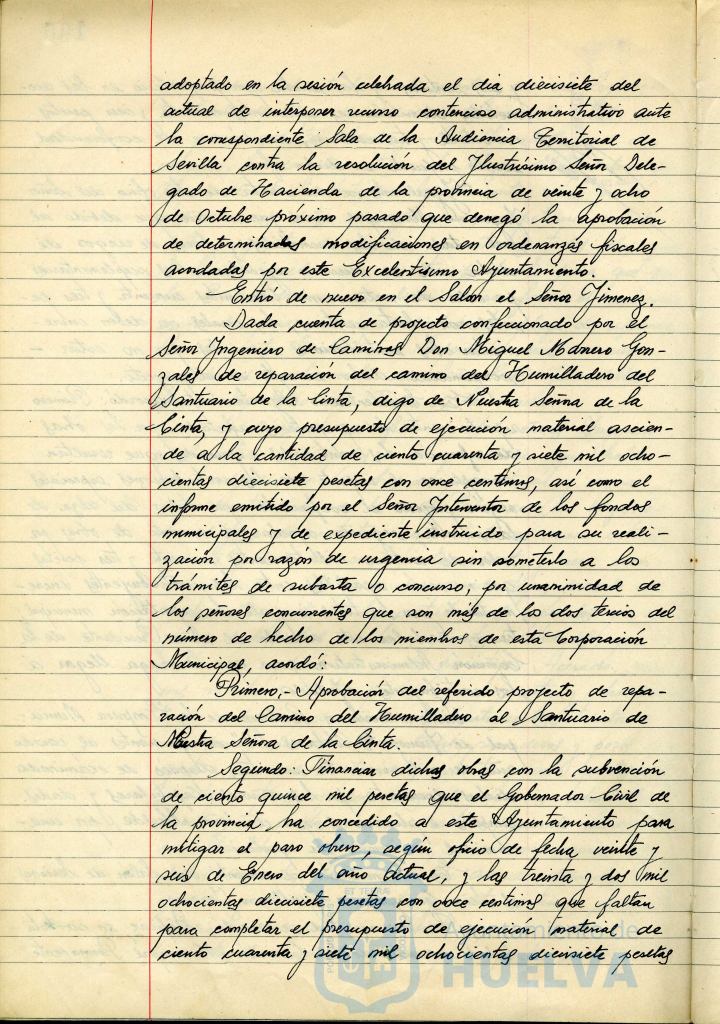 adoptado en la sesión celebrada el dia diecisiete del
actual de interponer recurso contencioso administrativo ante
la correspondiente Sala de la Audiencia Territorial de
Sevilla contra la resolución del Ilustrísimo Señor Dele-
gado de Hacienda de la provincia de veinte y ocho
de Octubre próximo pasado que denegó la aprobación
de determinadas modificaciones en ordenanzas fiscales
acordadas por este Excelentísimo Ayuntamiento.
Entró de nuevo en el Salón el Señor Jimenez.
Dada cuenta de proyecto confeccionado por el
Señor Ingeniero de Caminos Don Miguel Manero Gon-
zales de reparación del camino del Humilladero del
Santuario de la Cinta, digo de Nuestra Señna de la
Cinta, y cuyo presupuesto de ejecución material ascien-
de a la cantidad de ciento cuarenta y siete mil ocho-
cientas diecisiete pesetas con once centimos, así como el
informe emitido por el Señor Interventor de los fondos
municipales y de expediente instruido para su reali-
zación por razón de urgencia sin someterlo a los
trámites de subasta o concurso, por unanimidad de
los señores concurrentes que son más de los dos tercios del
número de hecho de los miembros de esta Corporación
Municipal, acordó:
Primero.- Aprobación del referido proyecto de repa-
ración del Camino del Humilladero al Santuario de
Nuestra Señora de la Cinta.
Segundo: Financiar dichas obras con la subvención
de ciento quince mil pesetas que el Gobernador Civil de
la provincia ha concedido a este Ayuntamiento para
mitigar el paro obrero, según oficio de fecha veinte y
seis de Enero del año actual, y las treinta y dos mil
ochocientas diecisiete pesetas con once centimos que faltan
para completar el presupuesto de ejecución material de
ciento cuarenta y siete mil ochocientas diecisiete pesetas
HUELVA